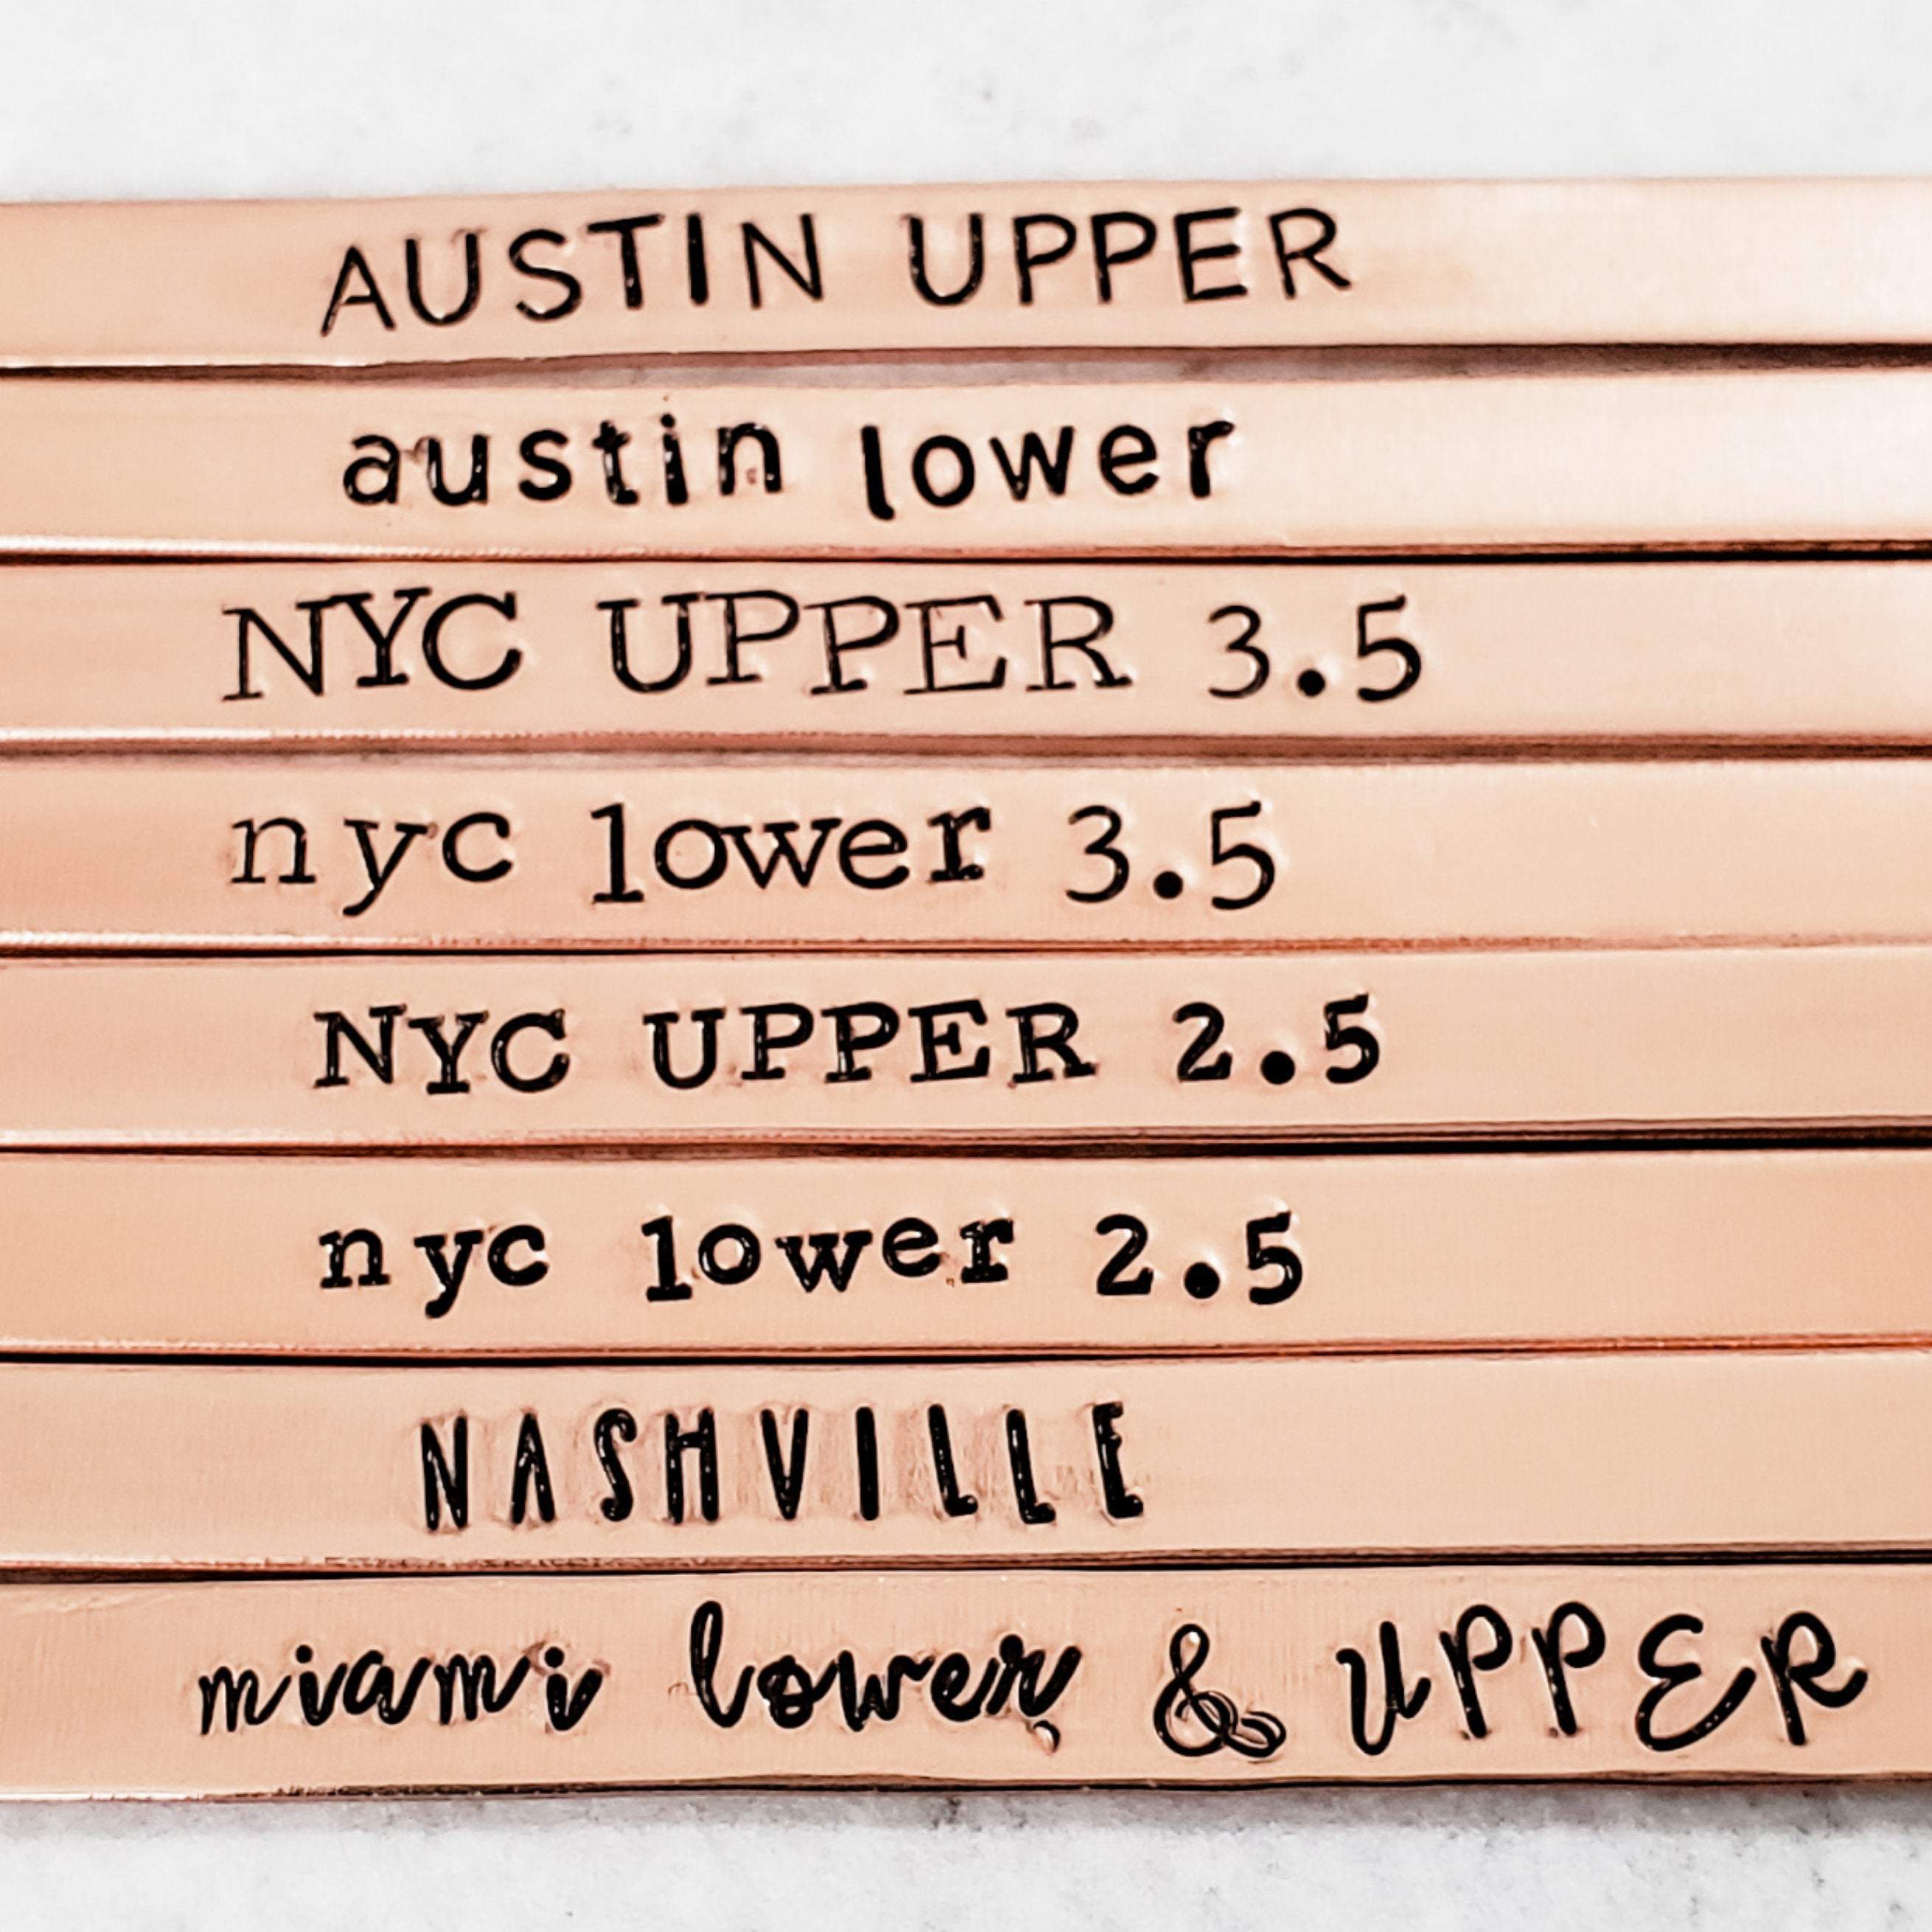 AUSTIN UPPER
austin lower
NYC UPPER 3.5
nyc lower 3.5
NYC UPPER 2.5
nyc lower 2.5
NASHVILLE
miami lower & UPPER